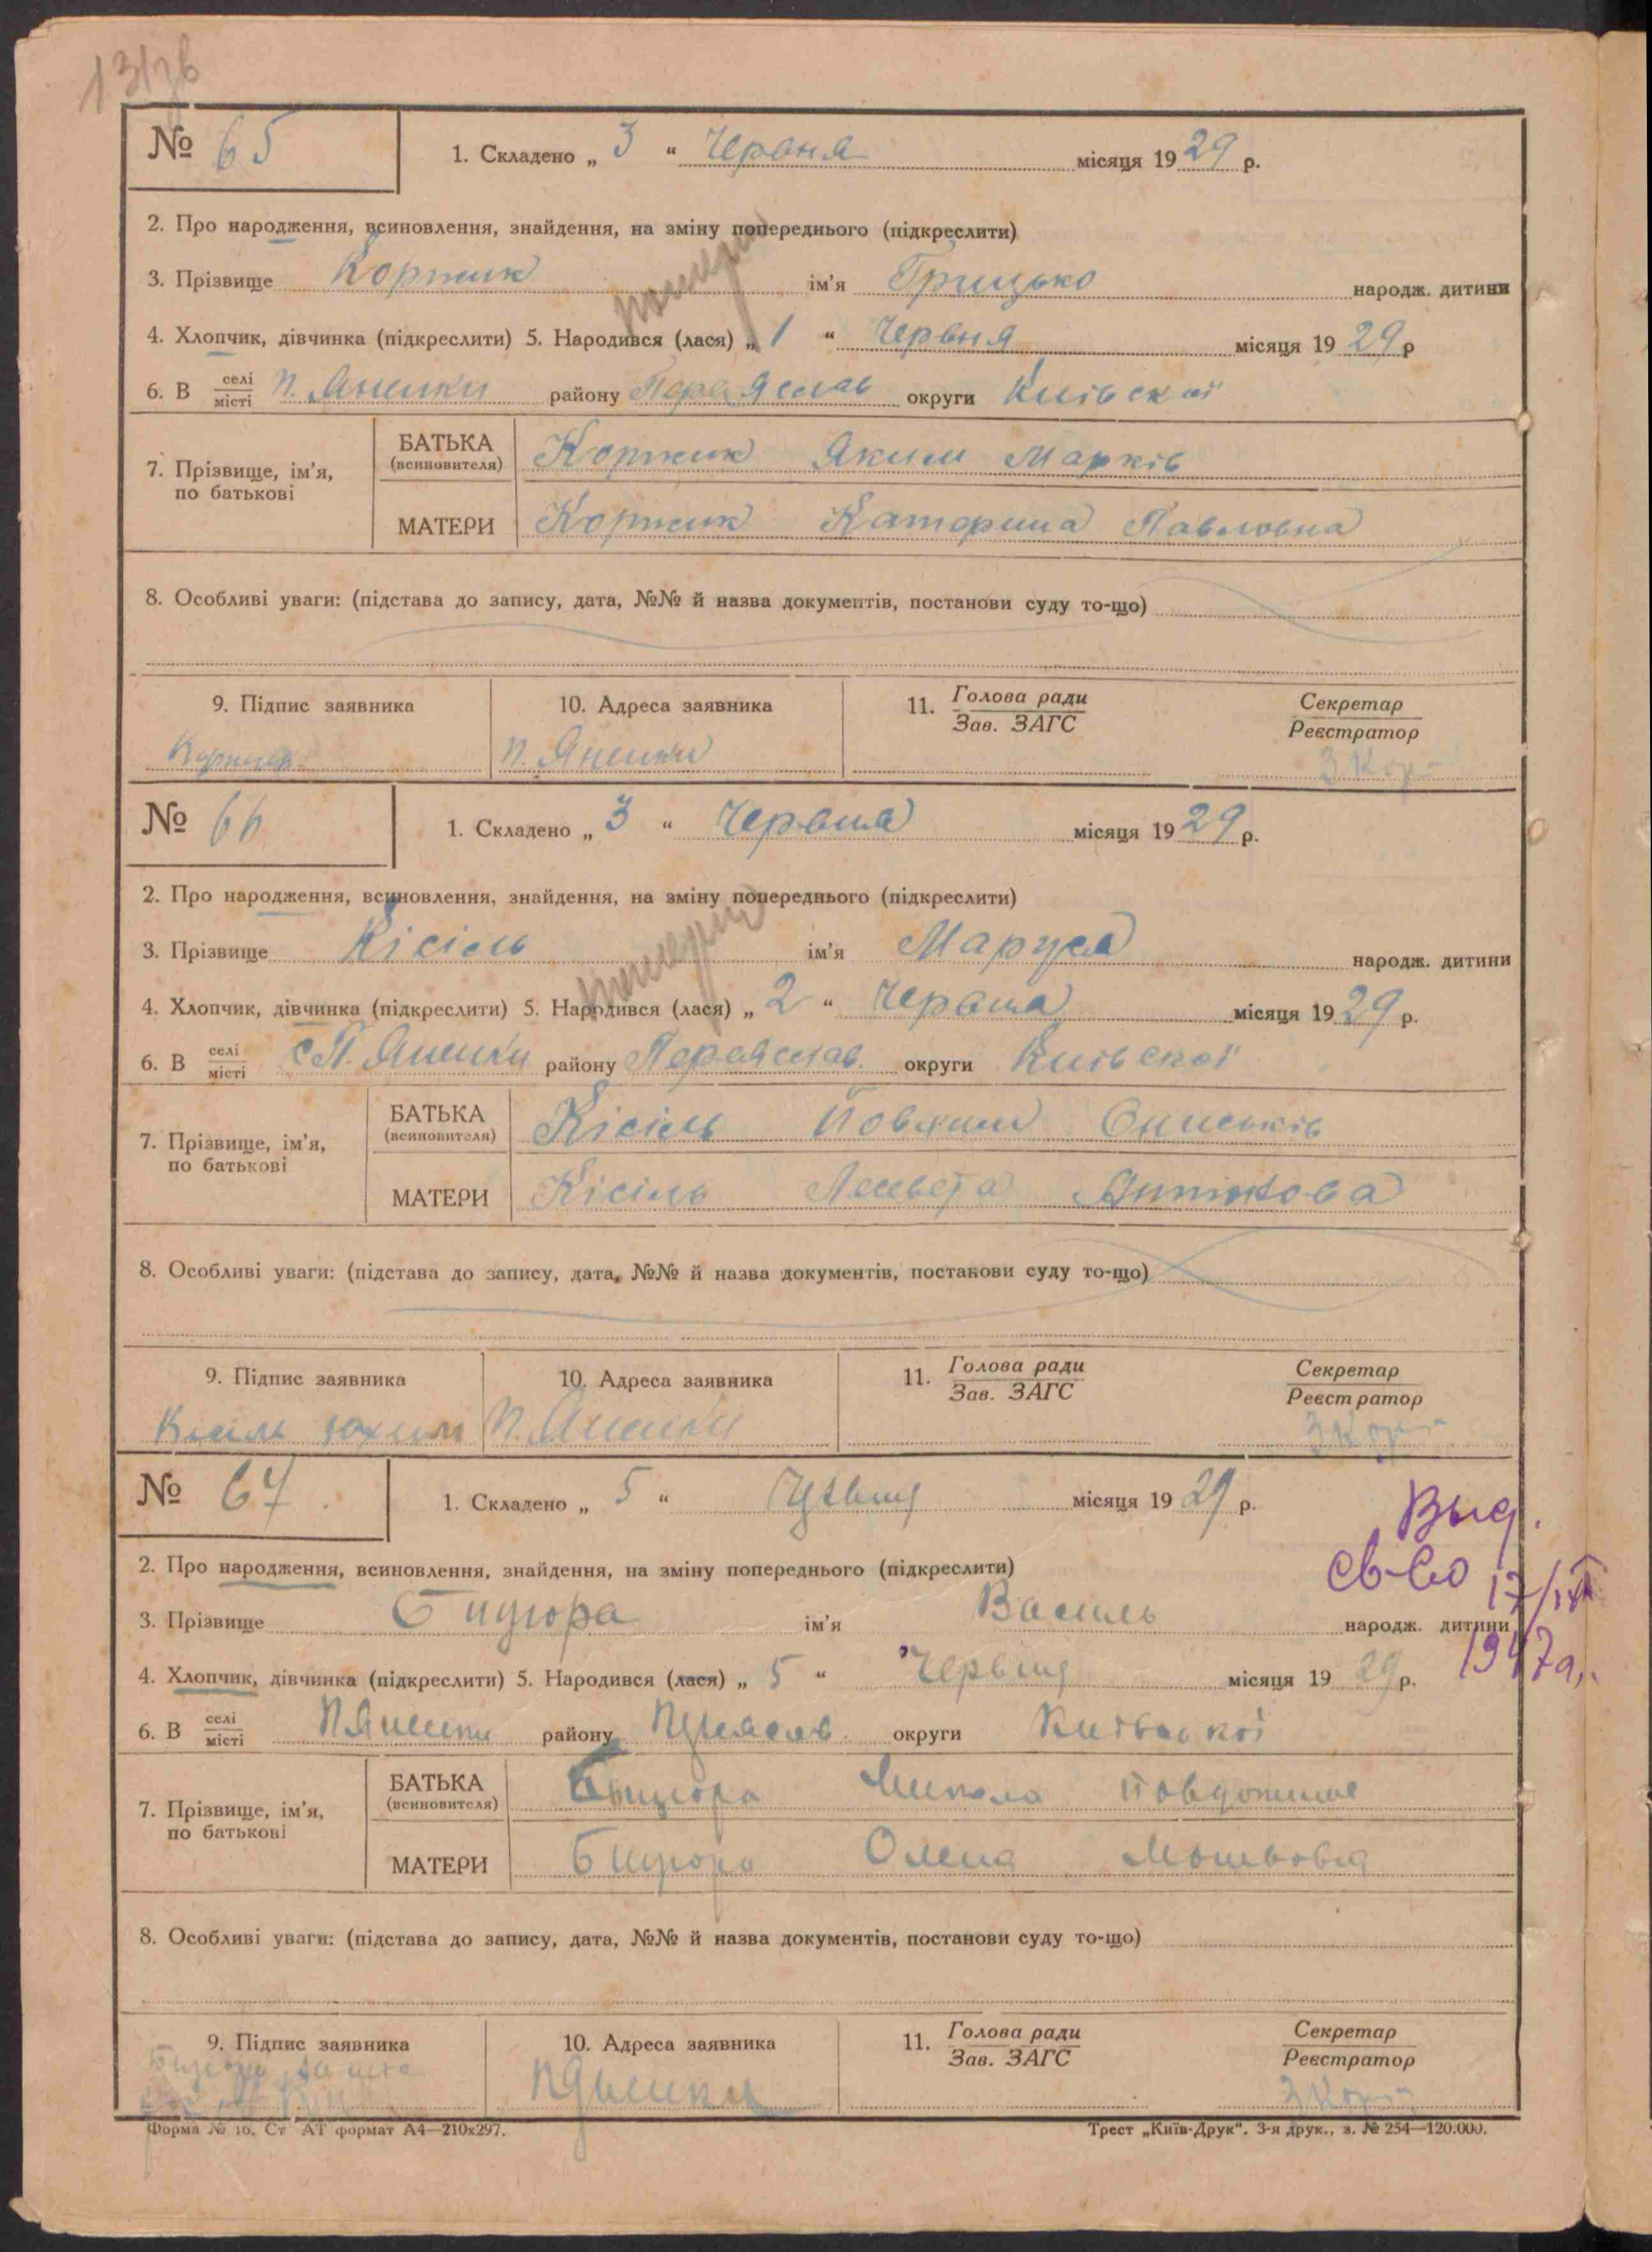 № 65
1. Складено „ 3 “ Червня місяця 1929 р.
2. Про народження, всиновлення, знайдення, на зміну попереднього (підкреслити)
3. Прізвище Коржик ім'я Грицько народж. дитини
4. Хлопчик, дівчинка (підкреслити) 5. Народився (лася) „ 1 “ Червня місяця 1929 р
6. В селі місті П. Яненки району Переяслав округи Київскої
7. Прізвище, ім'я, по батькові
БАТЬКА (всиновителя) Коржик Яким Марків
МАТЕРИ Коржик Катерина Павловна
8. Особливі уваги: (підстава до запису, дата, №№ й назва документів, постанови суду то-що)
9. Підпис заявника 10. Адреса заявника 11. Голова ради Зав. ЗАГС Секретар Реєстратор
Коржик П. Яненки
№ 66
1. Складено „ 3 “ Червня місяця 1929 р.
2. Про народження, всиновлення, знайдення, на зміну попереднього (підкреслити)
3. Прізвище Кісіль ім'я Маруся народж. дитини
4. Хлопчик, дівчинка (підкреслити) 5. Народився (лася) „ 2 “ Червня місяця 1929 р.
6. В селі місті с П. Яненки району Переяслав. округи Київскої
7. Прізвище, ім'я, по батькові
БАТЬКА (всиновителя) Кісіль Йовхим Ониськів
МАТЕРИ Кісіль
8. Особливі уваги: (підстава до запису, дата, №№ й назва документів, постанови суду то-що)
9. Підпис заявника 10. Адреса заявника 11. Голова ради Зав. ЗАГС Секретар Реєстратор
Кисиль Юхим П. Яненки
№ 67
1. Складено „ 5 “ місяця 1929 р.
Выд.
св-во 17/IX
1947 г.
2. Про народження, всиновлення, знайдення, на зміну попереднього (підкреслити)
3. Прізвище Бицюра ім'я Василь народж. дитини
4. Хлопчик, дівчинка (підкреслити) 5. Народився (лася) „ 5 “ Червня місяця 1929 р.
6. В селі місті П Яненки району округи Київської
7. Прізвище, ім'я, по батькові
БАТЬКА (всиновителя) Бицюра Микола
МАТЕРИ Бицюра Олена
8. Особливі уваги: (підстава до запису, дата, №№ й назва документів, постанови суду то-що)
9. Підпис заявника 10. Адреса заявника 11. Голова ради Зав. ЗАГС Секретар Реєстратор
П Яненки
Форма № 16. Ст АТ формат А4—210х297.
Трест „Київ-Друк“. 3-я друк., з. № 254—120.000.